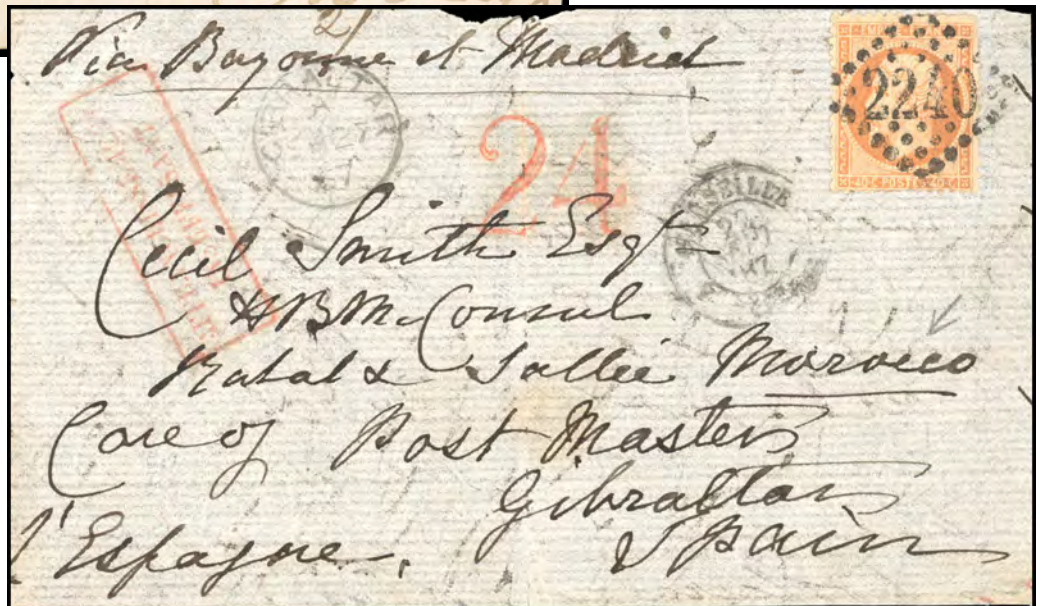 2/
Via Bayonne et Madrid
EMP
2240
40·C POSTES 40·C
GIBRALTAR
24
MARSEILLE
Cecil Smith Esqr
H B M. Consul
Rabat & Sallee Morocco
Care of Post Master
Gibraltar
l'Espagne. Spain